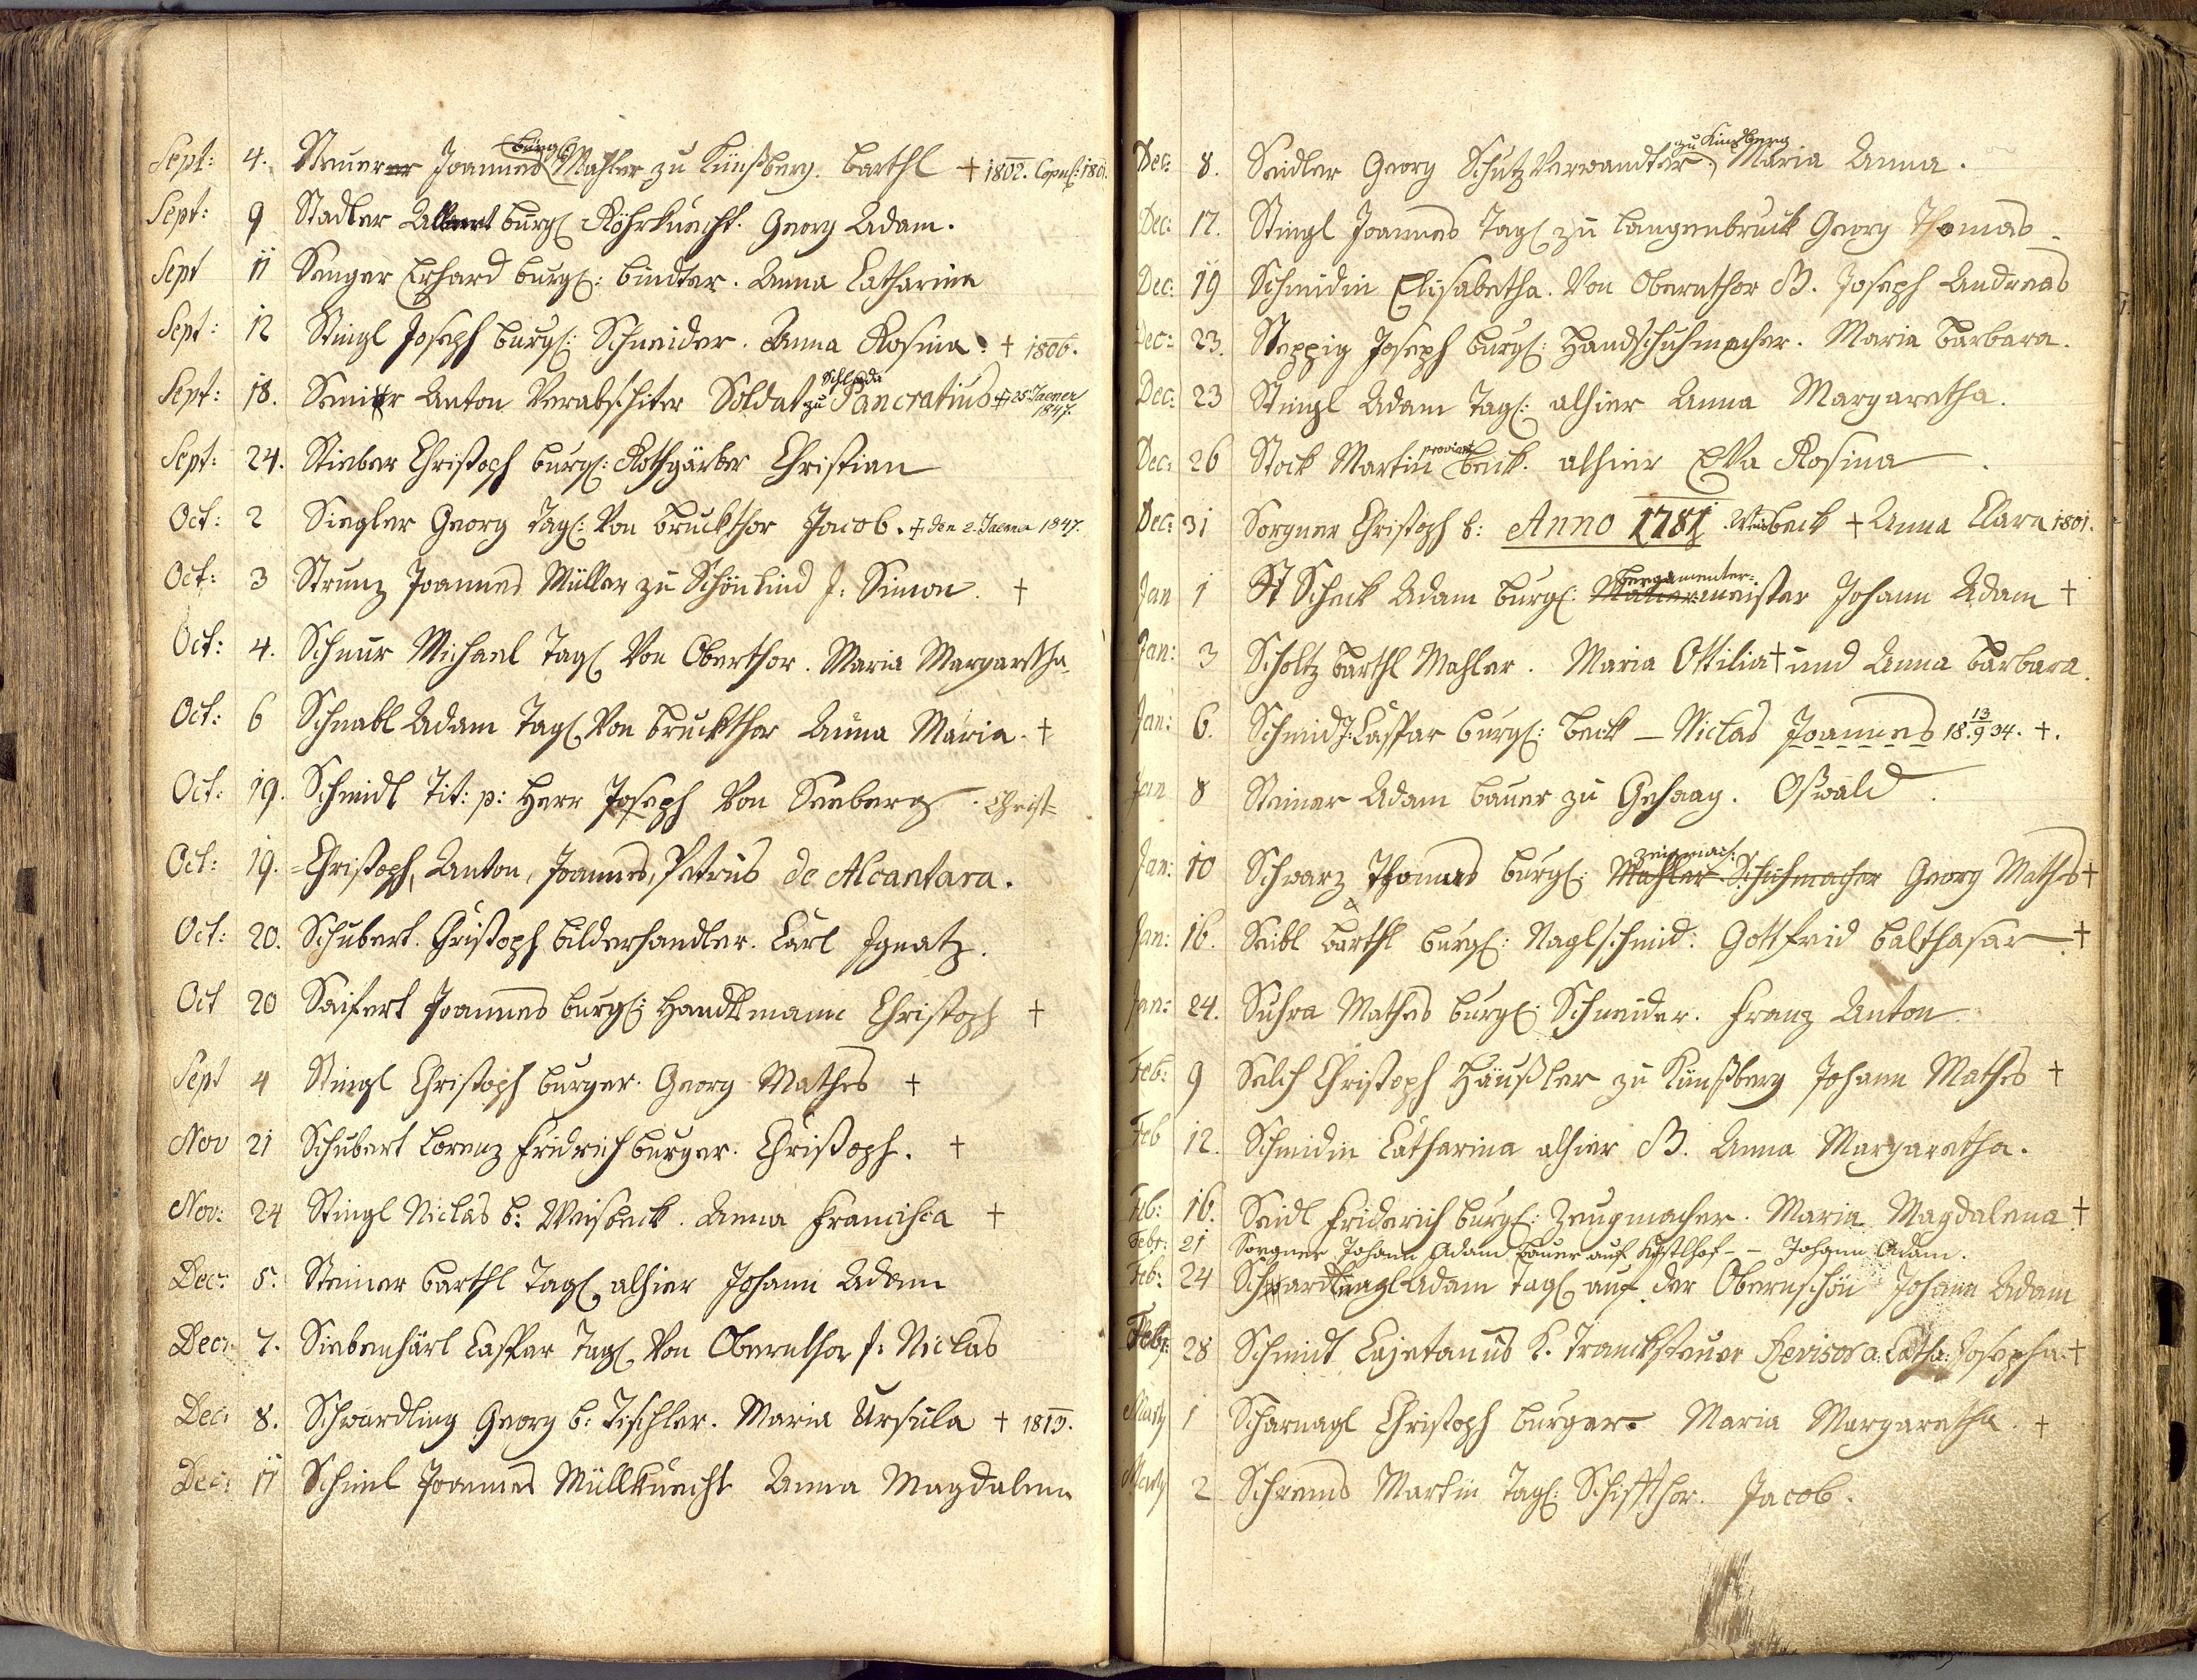 Sept: 4. Steurer Joannes burgl: Mahler zu Künsberg. Barthl + 1802. Copul: 1801.
Sept: 9 Stadler Albert burgl Röhrknecht. Georg Adam.
Sept 11 Senger Erhard burgl: bindter. Anna Catharina
Sept: 12 Stingl Joseph burgl: Schneider. Anna Rosina. + 1806.
Sept: 18. Anton Verabschiter Soldat zu Schlada Pancratius + 25 Jaener 1847.
Sept: 24. Stieber Christoph burgl: Rothgärber Christian
Oct: 2 Siegler Georg Tagl: Von Bruckthor Jacob. + den 2. Jaener 1847.
Oct: 3 Strunz Joannes Müller zu Schönlind J: Simon. +
Oct: 4. Schnur Michael Tagl Von Oberthor. Maria Margaretha
Oct: 6 Schnabl Adam Tagl Von Bruckthor Anna Maria. +
Oct: 19. Schmidl Tit: p: Herr Joseph Von Seeberg. Christ=
Oct: 19. =Christoph, Anton, Joannes, Petrus de Alcantara.
Oct: 20. Schubert. Christoph bilderhandler. Carl Ignatz.
Oct 20 Saifert Joannes burgl: Handlsmann Christoph +
Sept 4 Stingl Christoph burger. Georg Mathes +
Nov 21 Schubert Lorenz Fridrich burger. Christoph. +
Nov: 24 Stingl Niclas b: Weisbeck. Anna Francisca +
Dec: 5. Steiner Barthl Tagl alhier Johann Adam
Dec: 7. Siebenhärl Caspar Tagl Von Obernthor J: Niclas
Dec: 8. Schwardling Georg b: Tischler. Maria Ursula + 1813.
Dec: 11 Joannes Müllknecht Anna Magdalena
Dec: 8. Seidler Georg Schutz Verwandter zu Kinsberg, Maria Anna.
Dec: 17. Stingl Joannes Tagl zu Langenbruck Georg Thomas
Dec: 19 Schmidin Elisabetha. Von Obernthor B. Joseph Andreas
Dec: 23. Steppig Joseph burgl: Handschuhmacher. Maria Barbara.
Dec: 23 Stingl Adam Tagl: alhier Anna Margaretha.
Dec: 26 Stock Martin proviant beck. alhier Eva Rosina
Dec: 31 Sorgner Christoph b: Anno 1781 Weisbeck + Anna Clara 1801.
Jan 1 Scheck Adam burgl: bergamenter= meister Johann Adam +
Jan: 3 Scholtz Barthl Mahler. Maria Ottilia + und Anna Barbara.
Jan: 6. Schmid J: Caspar burgl: Beck – Niclas Joannes 18 13/9 34. +.
Jan 8 Steiner Adam bauer zu Gehaag. Oßwald.
Jan: 10 Schwarz Thomas burgl: Mahler Schuhmacher zeigmach: Georg Mathes +
Jan: 16. Seibl Barthl burgl: Naglschmid: Gottfrid Balthasar. +
Jan: 24. Suhra Mathes burgl: Schneider. Franz Anton
Feb: 9 Selch Christoph Häußler zu Künßberg Johann Mathes +
Feb 12. Schmidin Catharina alhier B. Anna Margaretha.
Feb: 16. Seidl Friderich burgl: Zeugmacher. Maria Magdalena +
Febr: 21 Sorgner Johann Adam Bauer auf -- Johann Adam.
Feb: 24 Adam Tagl auf der Obernschön Johann Adam
Febr: 28 Schmidt Cajetanus K. Tranksteuer Revisor a: Catha: Josepha. +
Marty 1 Scharnagl Christoph burger. Maria Margaretha. +
Marty 2 Schrems Martin Tagl: Schiffthor. Jacob.